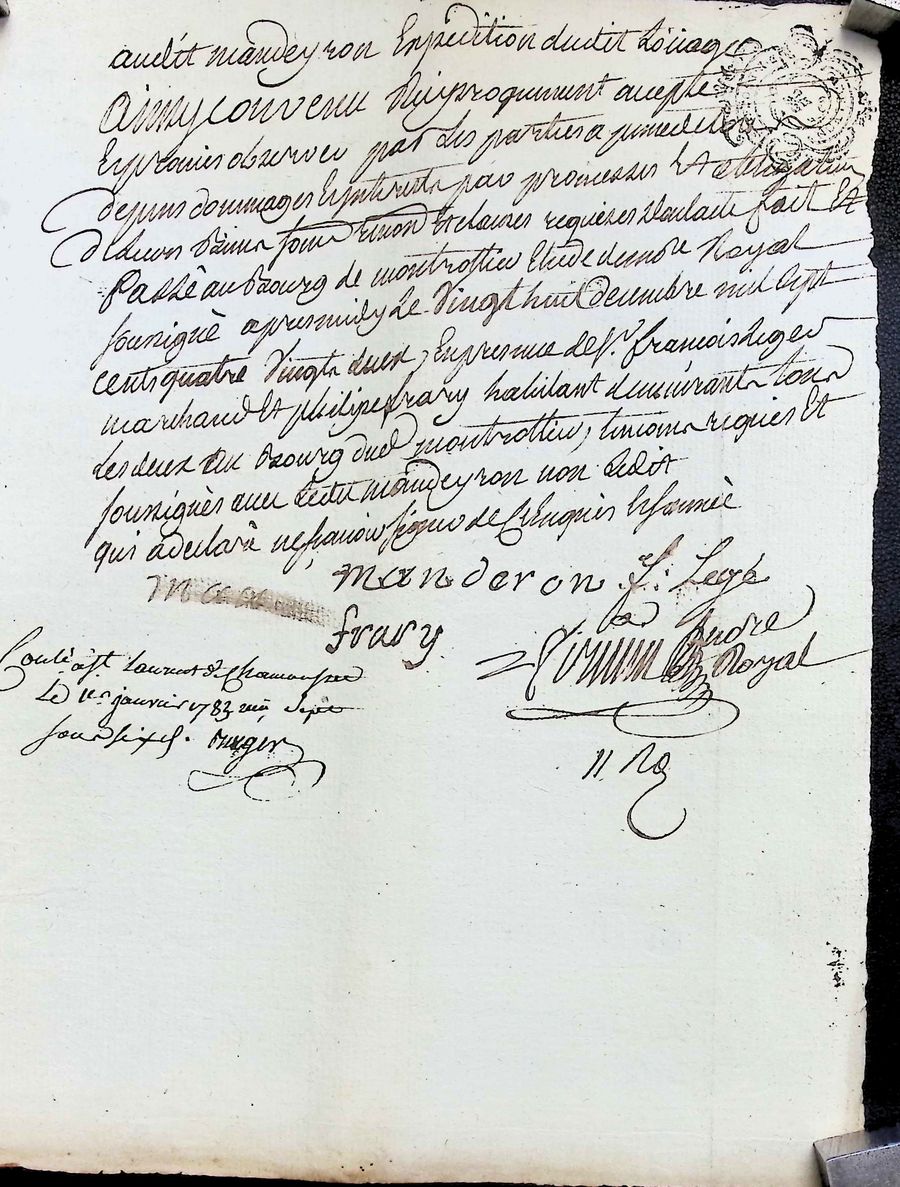 audit mandeyron Expédition dudit Loüage
Ainsy convenu Reciproquement accepté
Et promis observer par Les parties a peine de tous
depens dommages Et interests par promesses Et obligation
de Leurs Biens soum renon Et clauses requises dont acte fait Et
Passé au Bourg de montrottier Etude du nore Royal
soussigné apres midy Le Vingt huit decembre mil sept
cents quatre Vingts deux, En presence de Sr. francois Leger
marchand Et philipe frary habitant demeurants tous
Les deux au Bourg dud montrottier, temoins requis Et
soussignés avec Ledit mandeyron non Ledit
qui a declaré ne scavoir signer de ce Enquis Et sommé
manderon f: Legé
frary
André
Nore Royal
Conlé à St Laurent de Chamousset
Le 1er janvier 1783 reçu sept
sous six d.
11 Ro